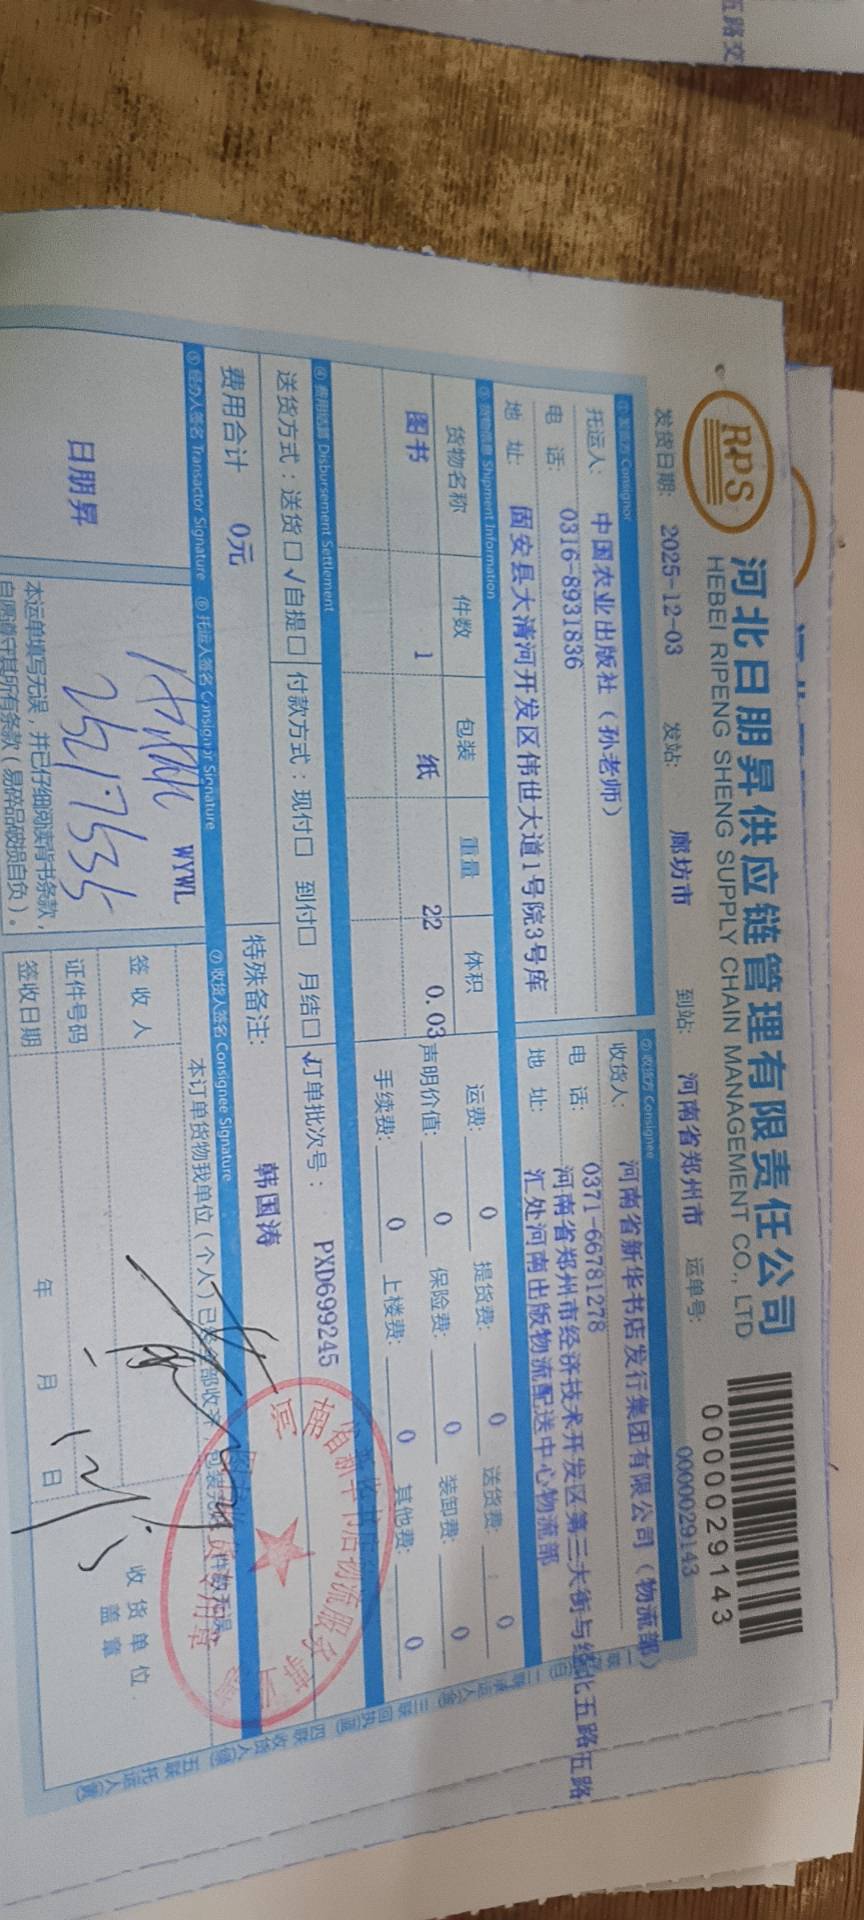 五路交
RPS
河北日朋昇供应链管理有限责任公司
HEBEI RIPENG SHENG SUPPLY CHAIN MANAGEMENT CO., LTD
0000029143
发货日期: 2025-12-03 发站: 廊坊市 到站: 河南省郑州市 运单号: 0000029143
① 发货方 Consignor ② 收货方 Consignee
托运人: 中国农业出版社（孙老师） 收货人: 河南省新华书店发行集团有限公司（物流部）
电 话: 0316-8931836 电 话: 0371-66781278
地 址: 固安县大清河开发区伟世大道1号院3号库 地 址: 河南省郑州市经济技术开发区第三大街与经北五路五路
汇处河南出版物流配送中心物流部
③ 货物信息 Shipment Information
货物名称 件数 包装 重量 体积 运费: 0 提货费: 0 送货费: 0
图书 1 纸 22 0.03 声明价值: 0 保险费: 0 装卸费: 0
手续费: 0 上楼费: 0 其他费: 0
④ 费用结算 Disbursement Settlement
送货方式：送货□√自提□ 付款方式：现付□ 到付□ 月结□√ 订单批次号： PXD699245
费用合计 0元 特殊备注: 韩国涛
⑤ 经办人签名 Transactor Signature ⑥ 托运人签名 Consignor Signature ⑦ 收货人签名 Consignee Signature
日朋昇 WYWL
本订单货物我单位（个人）已
签收人
证件号码
签收日期 年 月 日
收货单位
盖章
本运单填写无误，并已仔细阅读背书条款，
自愿遵守其所有条款（易碎品破损自负）。